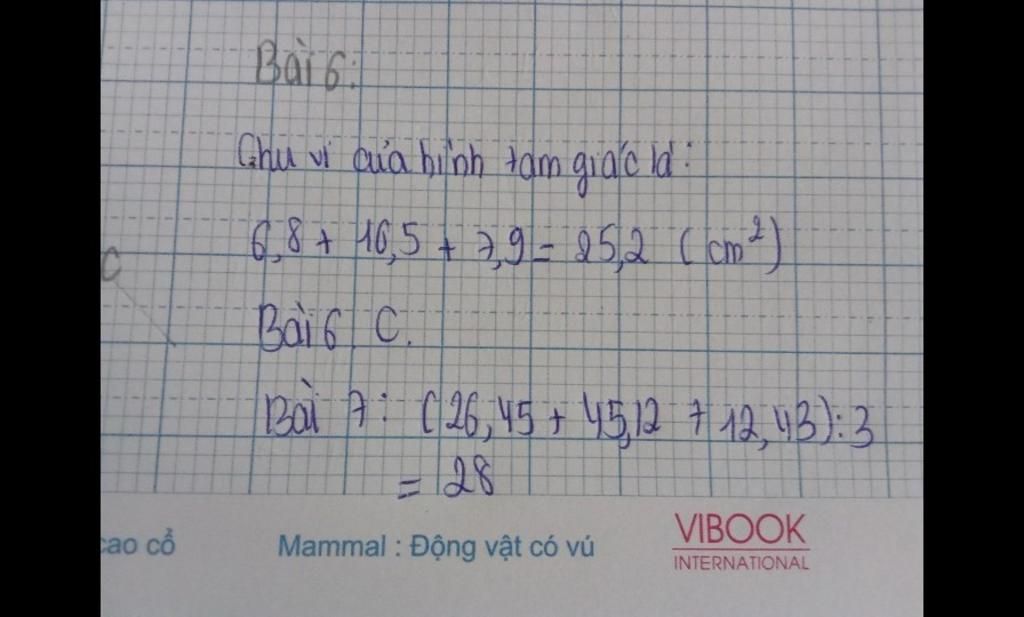 Bài 6:
Chu vi của hình tam giác là:
6,8 + 10,5 + 7,9 = 25,2 (cm²)
C
Bài 6 C.
Bài 7: (26,45 + 45,12 + 12,43):3
= 28
cao cổ
Mammal : Động vật có vú
VIBOOK
INTERNATIONAL